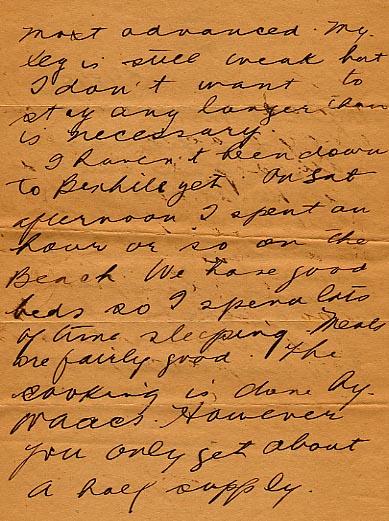 most advanced. My
leg is still weak but
I don't want to
stay any longer than
is necessary.
I haven't been down
to Bexhill yet On Sat
afternoon I spent an
hour or so on the
Beach We have good
beds so I spend lots
of time sleeping. Meals
are fairly good. The
cooking is done by
Waacs. However
you only get about
a half supply.